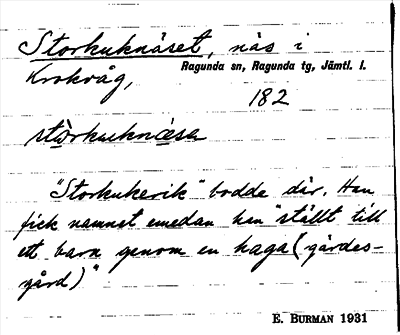 Storkuknäset, näs i
Krokvåg, Ragunda sn, Ragunda tg, Jämtl. l.
182
stòrkuknäsea
"Storkukerik" bodde där. Han
fick namnet emedan han "ställt till
ett barn genom en haga (gärdes-
gård)"
E. BURMAN 1931